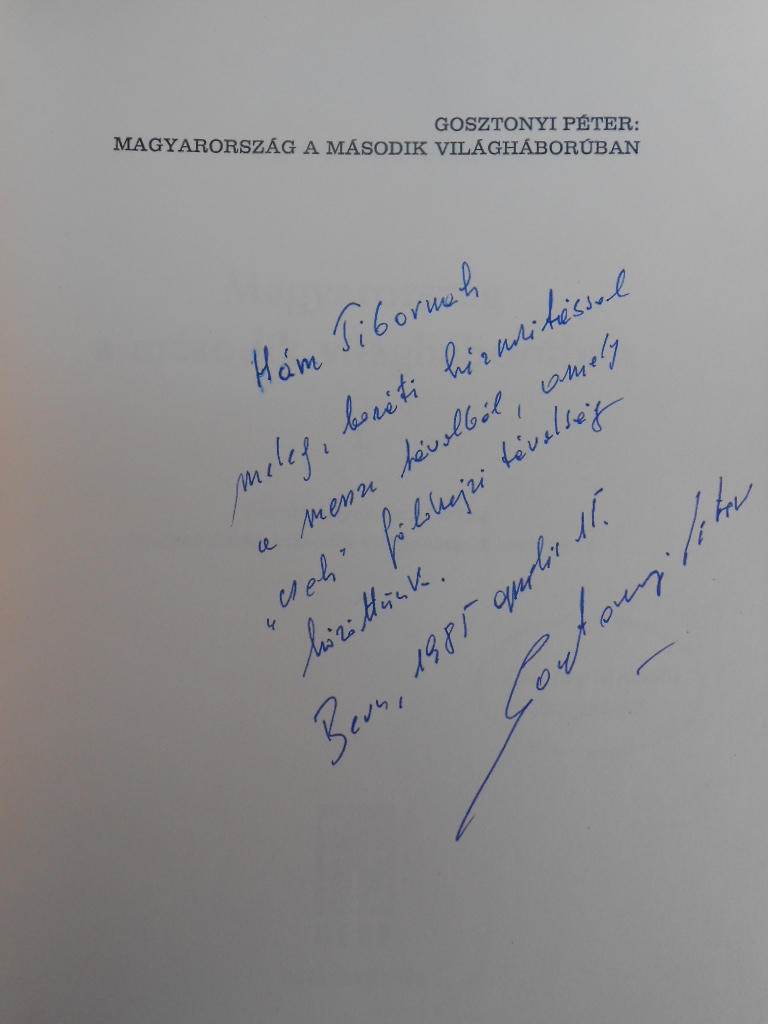 GOSZTONYI PÉTER:
MAGYARORSZÁG A MÁSODIK VILÁGHÁBORÚBAN
Hám Tibornak
meleg, baráti kézszorítással
a messze távolból, amely
"csak" földrajzi távolság
közöttünk.
Bern, 1985 április 15.
Gosztonyi Péter